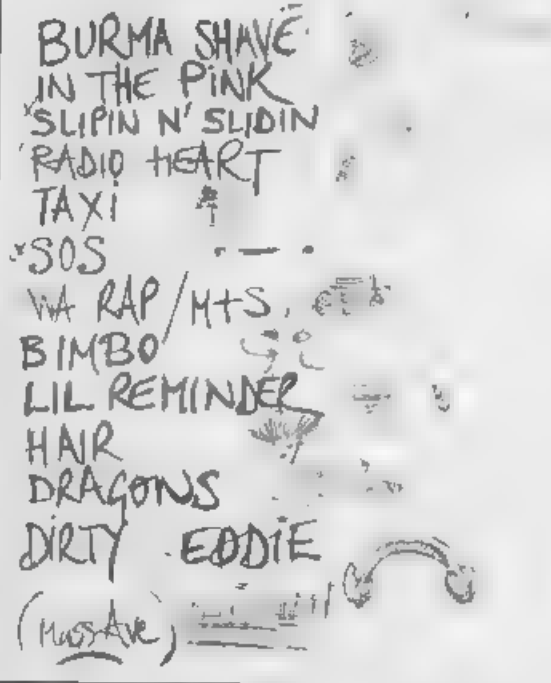 BURMA SHAVE
IN THE PiNK
SLIPIN N' SLIDIN
RADIO HEART
TAXi
SOS
ViA RAP/M+S
BIMBO
LIL REMINDER
HAIR
DRAGONS
DiRTY EDDiE
(Mass Ave)